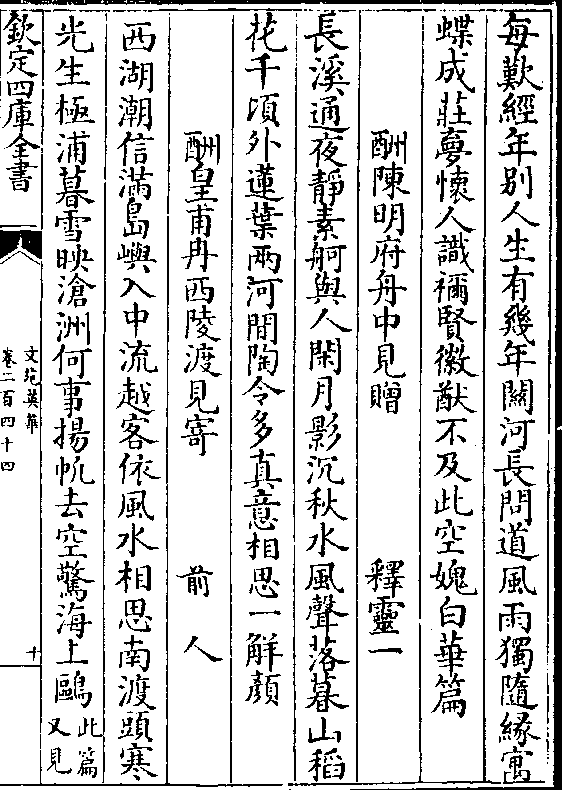 每歎經年别人生有幾年關河長問道風雨獨隨緣寓
蝶成莊夢懷人識禰賢徽猷不及此空媿白華篇
酬陳明府舟中見贈 釋靈一
長溪通夜靜素舸與人閑月影沉秋水風聲落暮山稻
花千頃外蓮葉兩河間陶令多真意相思一解顔
酬皇甫冉西陵渡見寄 前人
西湖潮信滿島嶼入中流越客依風水相思南渡頭寒
光生極浦暮雪映滄洲何事揚帆去空驚海上鷗此篇
又見
欽定四庫全書
文苑英華
卷二百四十四
十